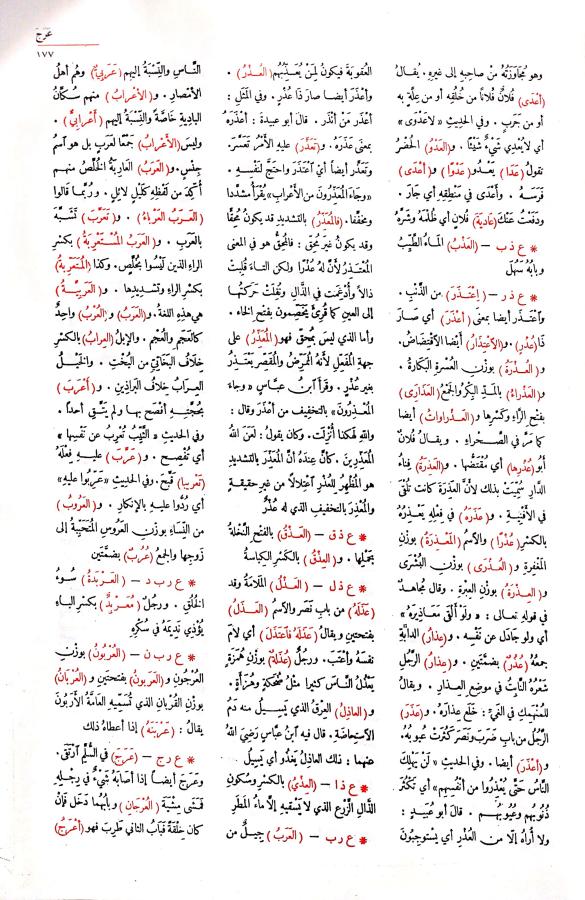 عَرَجَ
١٧٧
وهو مُجَاوَزَتُهُ من صاحِبِه إلى غيرِه . يُقالُ
(أعْدَى) فُلانٌ فُلاناً من خُلُقِه أو من عِلَّةٍ به
أو من جَرَبٍ . وفي الحديثِ «لا عَدْوَى»
أي لا يُعْدِي شَيْءٌ شَيْئاً . و(العَدْوُ) الحُضْرُ
تقولُ (عَدَا) يَعْدُو (عَدْوًا) و(أعْدَى)
فَرَسَه . وأَعْدَى في مَنْطِقِه أي جَارَ .
ودَفَعْتُ عَنْكَ (عَادِيَةَ) فُلانٍ أي ظُلْمَهُ وشَرَّهُ
* ع ذ ب – (العَذْبُ) المَاءُ الطَّيِّبُ
وبابُهُ سَهُلَ
* ع ذ ر – (اِعْتَذَرَ) من الذَّنْبِ .
وآعْتَذَرَ أيضا بمعنَى (أعْذَرَ) أي صارَ
ذا (عُذْرٍ) . و(الاِعْتِذَارُ) أيْضا الاقْتِضَاضُ .
و(العُذْرَةُ) بوزنِ العُسْرةِ البَكَارةُ .
و(العَذْرَاءُ) بالمَدِّ البِكْرُ والجَمْعُ (العَذَارَى)
بفتحِ الرَّاءِ وكَسْرِها و(العَذْراواتُ) أيضا
كما مَرَّ في الصَّحْراءِ . ويقالُ فُلانٌ
أبُو (عُذْرِها) أي مُقْتَضُّها . و(العَذِرَةُ) فِناءُ
الدَّارِ سُمِّيَتْ بذلك لأنَّ العَذِرَةَ كانت تُلْقَى
في الأفْنِيَةِ . و(عَذَرَهُ) في فِعْلِه يَعْذِرُهُ
بالكَسْرِ (عُذْرًا) والاسمُ (المَعْذِرَةُ) بوزنِ
المَغْفِرةِ و(العُذْرَى) بوزنِ البُشْرَى
و(العِذْرَةُ) بوزنِ العِبْرةِ . وقال مُجاهدٌ
في قولِه تعالى : « ولَوْ أَلْقَى مَعَاذِيرَهُ »
أي ولو جادَلَ عن نَفْسِه . و(عِذارُ) الدابَّةِ
جمعُهُ (عُذُرٌ) بضمَّتَيْنِ . و(عِذارُ) الرَّجُلِ
شَعْرُهُ النَّابِتُ في موضِعِ العِذارِ . ويقالُ
للمُنْهَمِكِ في الغَيِّ : خَلَعَ عِذارَهُ . و(عَذَرَ)
الرَّجُلُ من بابِ ضَرَبَ ونَصَرَ كَثُرَتْ عُيوبُهُ .
و(أعْذَرَ) أيضا . وفي الحديثِ «لَنْ يَهْلِكَ
النَّاسُ حتَّى يُعْذِرُوا من أنْفُسِهِم» أي تَكْثُرَ
ذُنُوبُهم وعُيُوبُهم . قالَ أبو عُبَيدٍ :
ولا أُراهُ إلّا من العُذْرِ أي يستوجِبُونَ
العُقوبَةَ فيكونُ لِمَنْ يُعَذِّبُهُم (العُذْرُ) .
وأعْذَرَ أيضا صارَ ذَا عُذْرٍ . وفي المَثَلِ :
أعْذَرَ مَنْ أنْذَرَ . قالَ أبو عبيدةَ : أعْذَرَهُ
بمعنَى عَذَرَهُ . و(تَعَذَّرَ) عليه الأمرُ تَعَسَّرَ .
وتَعَذَّرَ أيضاً أي آعْتَذَرَ واحتَجَّ لنفسِه .
«وجاءَ المُعَذِّرُونَ من الأعْرابِ» يُقْرَأُ مشدَّدا
ومخفَّفا . (فالمُعَذِّرُ) بالتشديدِ قد يكونُ مُحِقًّا
وقد يكونُ غيرَ مُحِقّ : فالمُحِقُّ هو في المعنى
المُعْتَذِرُ لأنَّ له عُذْرًا ولكن التاءَ قُلِبَتْ
ذالاً وأُدْغِمَت في الذَّالِ ونُقِلَتْ حَرَكتُها
إلى العينِ كما قُرِئَ يَخَصِّمون بفتحِ الخاءِ .
وأما الذي ليس بمُحِقٍّ فهو (المُعَذِّرُ) على
جِهةِ المُفَعِّلِ لأنَّهُ المُمَرِّضُ والمُقَصِّرُ يَعْتَذِرُ
بغيرِ عُذْرٍ . وقَرَأ ابنُ عبَّاسٍ « وجاءَ
المُعْذِرُونَ» بالتخفيفِ من أعْذَرَ وقال :
واللهِ لَهكذا أُنْزِلَتْ . وكان يقولُ : لَعَنَ اللهُ
المُعَذِّرِينَ . كأنَّ عندَهُ أنَّ المُعَذِّرَ بالتشديدِ
هو المُظْهِرُ للعُذْرِ آعْتِلالًا من غيرِ حقيقةٍ
والمُعْذِرَ بالتخفيفِ الذي له عُذْرٌ
* ع ذ ق – (العَذْقُ) بالفتحِ النَّخْلةُ
بحَمْلِها . و(العِذْقُ) بالكَسْرِ الكِباسةُ
* ع ذ ل – (العَذْلُ) المَلامَةُ وقد
(عَذَلَهُ) من بابِ نَصَرَ والاسمُ (العَذَلُ)
بفتحتينِ ويقالُ (عَذَلَهُ فاعْتَذَلَ) أي لامَ
نفسَهُ وأعْتَبَ . ورجُلٌ (عُذَلَةٌ) بوزنِ هُمَزةٍ
يَعْذُلُ النَّاسَ كثيرا مثلُ ضُحَكةٍ وهُزَأةٍ .
و(العاذِلُ) العِرْقُ الذي يَسيلُ منه دَمُ
الاستحاضةِ . قال فيه ابنُ عباسٍ رَضِيَ اللهُ
عنهما : ذلك العاذِلُ يَغْذُو أي يَسِيلُ
* ع ذ ا – (العِذْيُ) بالكَسْرِ وسُكونِ
الذَّالِ الزَّرْعُ الذي لا يَسْقيهِ إلّا ماءُ المَطَرِ
* ع ر ب – (العَرَبُ) جِيلٌ من
النَّاسِ والنِّسْبَةُ إليهم (عَرَبِيٌّ) وهُم أهلُ
الأمْصارِ . و(الأعْرابُ) منهم سُكّانُ
البادِيةِ خاصَّةً والنِّسْبَةُ إليهم (أعْرَابِيٌّ) .
وليسَ (الأعْرابُ) جَمْعًا لعَرَبٍ بل هو آسمُ
جِنْسٍ . و(العَرَبُ) العارِبةُ الخُلَّصُ منهم
أُكِّدَ من لَفْظِهِ كلَيْلٍ لائِلٍ . ورُبَّما قالوا
(العَرَبُ العَرْباءُ) . و(تَعَرَّبَ) تَشَبَّهَ
بالعَرَبِ . و(العَرَبُ المُسْتَعْرِبةُ) بكَسْرِ
الراءِ الذين لَيْسُوا بخُلَّصٍ . وكذا (المُتَعَرِّبةُ)
بكَسْرِ الراءِ وتشديدِها . و(العَرَبِيَّةُ)
هي هذه اللغةُ . و(العَرَبُ) و(العُرْبُ) واحدٌ
كالعَجَمِ والعُجْمِ . والإبِلُ (العِرابُ) بالكَسْرِ
خِلافُ البَخَاتِيِّ من البُخْتِ . والخَيْلُ
العِرابُ خلافُ البَراذِينِ . و(أعْرَبَ)
بحُجَّتِه أفْصَحَ بها ولم يَتَّقِ أحدًا .
وفي الحديثِ « الثَّيِّبُ تُعْرِبُ عن نَفْسِها »
أي تُفْصِحُ . و(عَرَّبَ) عليه فِعْلَهُ
(تَعْرِيبا) قَبَّحَ . وفي الحديثِ «عَرِّبُوا عليه»
أي رُدُّوا عليه بالإنكارِ . و(العَرُوبُ)
من النِّساءِ بوزنِ العَرُوسِ المُتَحَبِّبَةُ إلى
زَوجِها والجمعُ (عُرُبٌ) بضمَّتينِ
* ع ر ب د – (العَرْبَدَةُ) سُوءُ
الخُلُقِ . ورجُلٌ (مُعَرْبِدٌ) بكسرِ الباءِ
يُؤْذِي نَدِيمَهُ في سُكْرِهِ
* ع ر ب ن – (العُرْبُونُ) بوزنِ
العُرْجونِ و(العَرَبُونُ) بفتحتينِ و(العُرْبانُ)
بوزنِ القُرْبانِ الذي تُسَمِّيهِ العامَّةُ الأَرَبُونَ
يقالُ : (عَرْبَنَهُ) إذا أعطاهُ ذلك
* ع ر ج – (عَرَجَ) في السُّلَّمِ آرْتَقَى .
وعَرَجَ أيضاً إذا أصابَهُ شَيْءٌ في رِجْلِه
فمَشَى مِشْيَةَ (العُرْجانِ) وبابُهُما دَخَلَ فإنْ
كان خِلْقَةً فبابُ الثاني طَرِبَ فهو (أعْرَجُ)